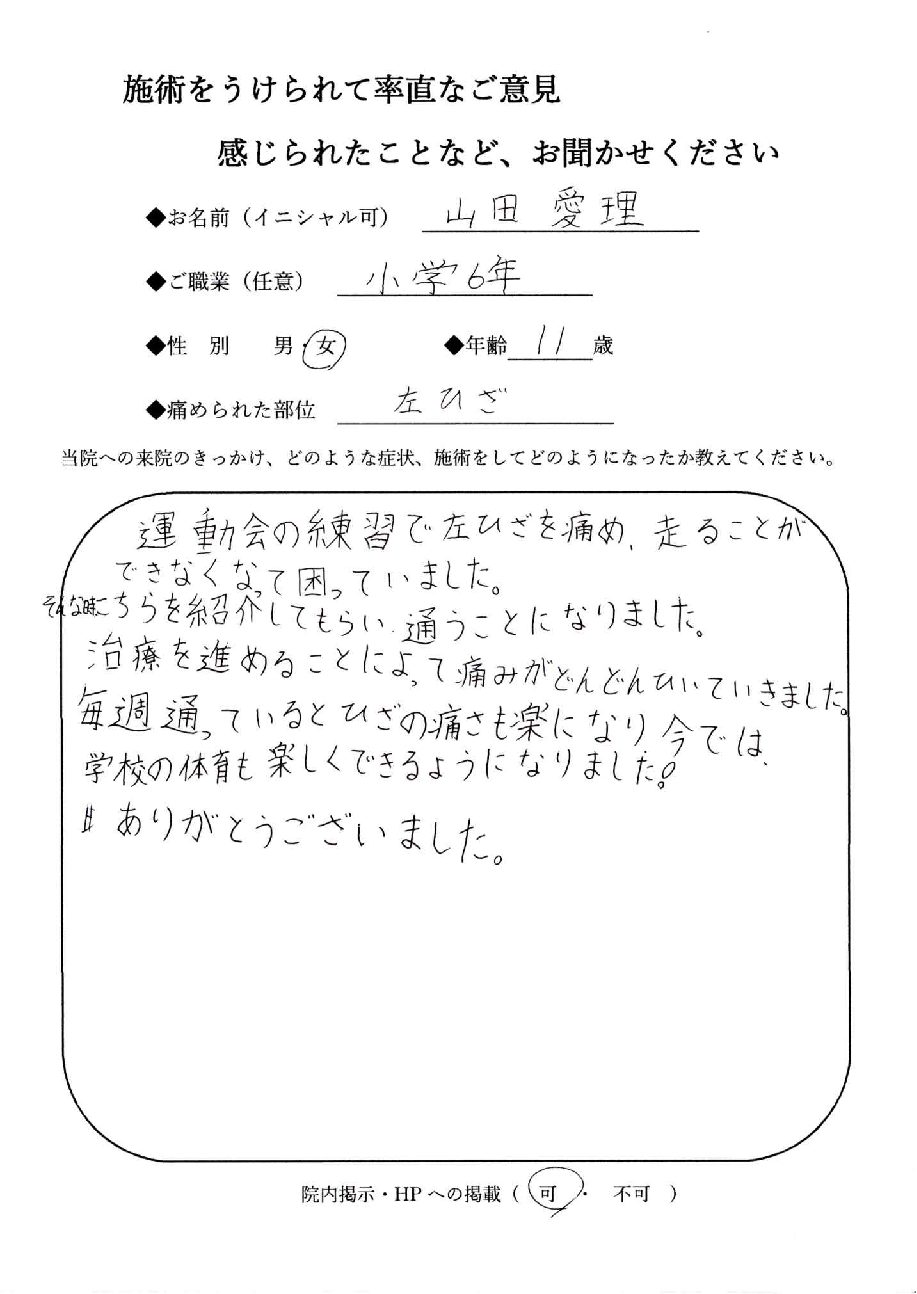 施術をうけられて率直なご意見
感じられたことなど、お聞かせください
◆お名前（イニシャル可） 山田 愛理
◆ご職業（任意） 小学6年
◆性 別 男・女 ◆年齢 11 歳
◆痛められた部位 左ひざ
当院への来院のきっかけ、どのような症状、施術をしてどのようになったか教えてください。
運動会の練習で左ひざを痛め、走ることが
できなくなって困っていました。
そんな時にこちらを紹介してもらい、通うことになりました。
治療を進めることによって痛みがどんどんひいていきました。
毎週通っているとひざの痛さも楽になり今では、
学校の体育も楽しくできるようになりました!
ありがとうございました。
院内掲示・HPへの掲載（ 可 ・ 不可 ）